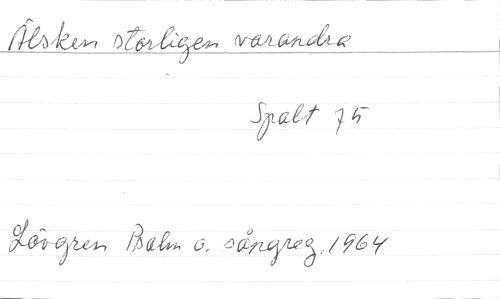 Älsken storligen varandra
Spalt 75
Lövgren Psalm o. sångreg. 1964